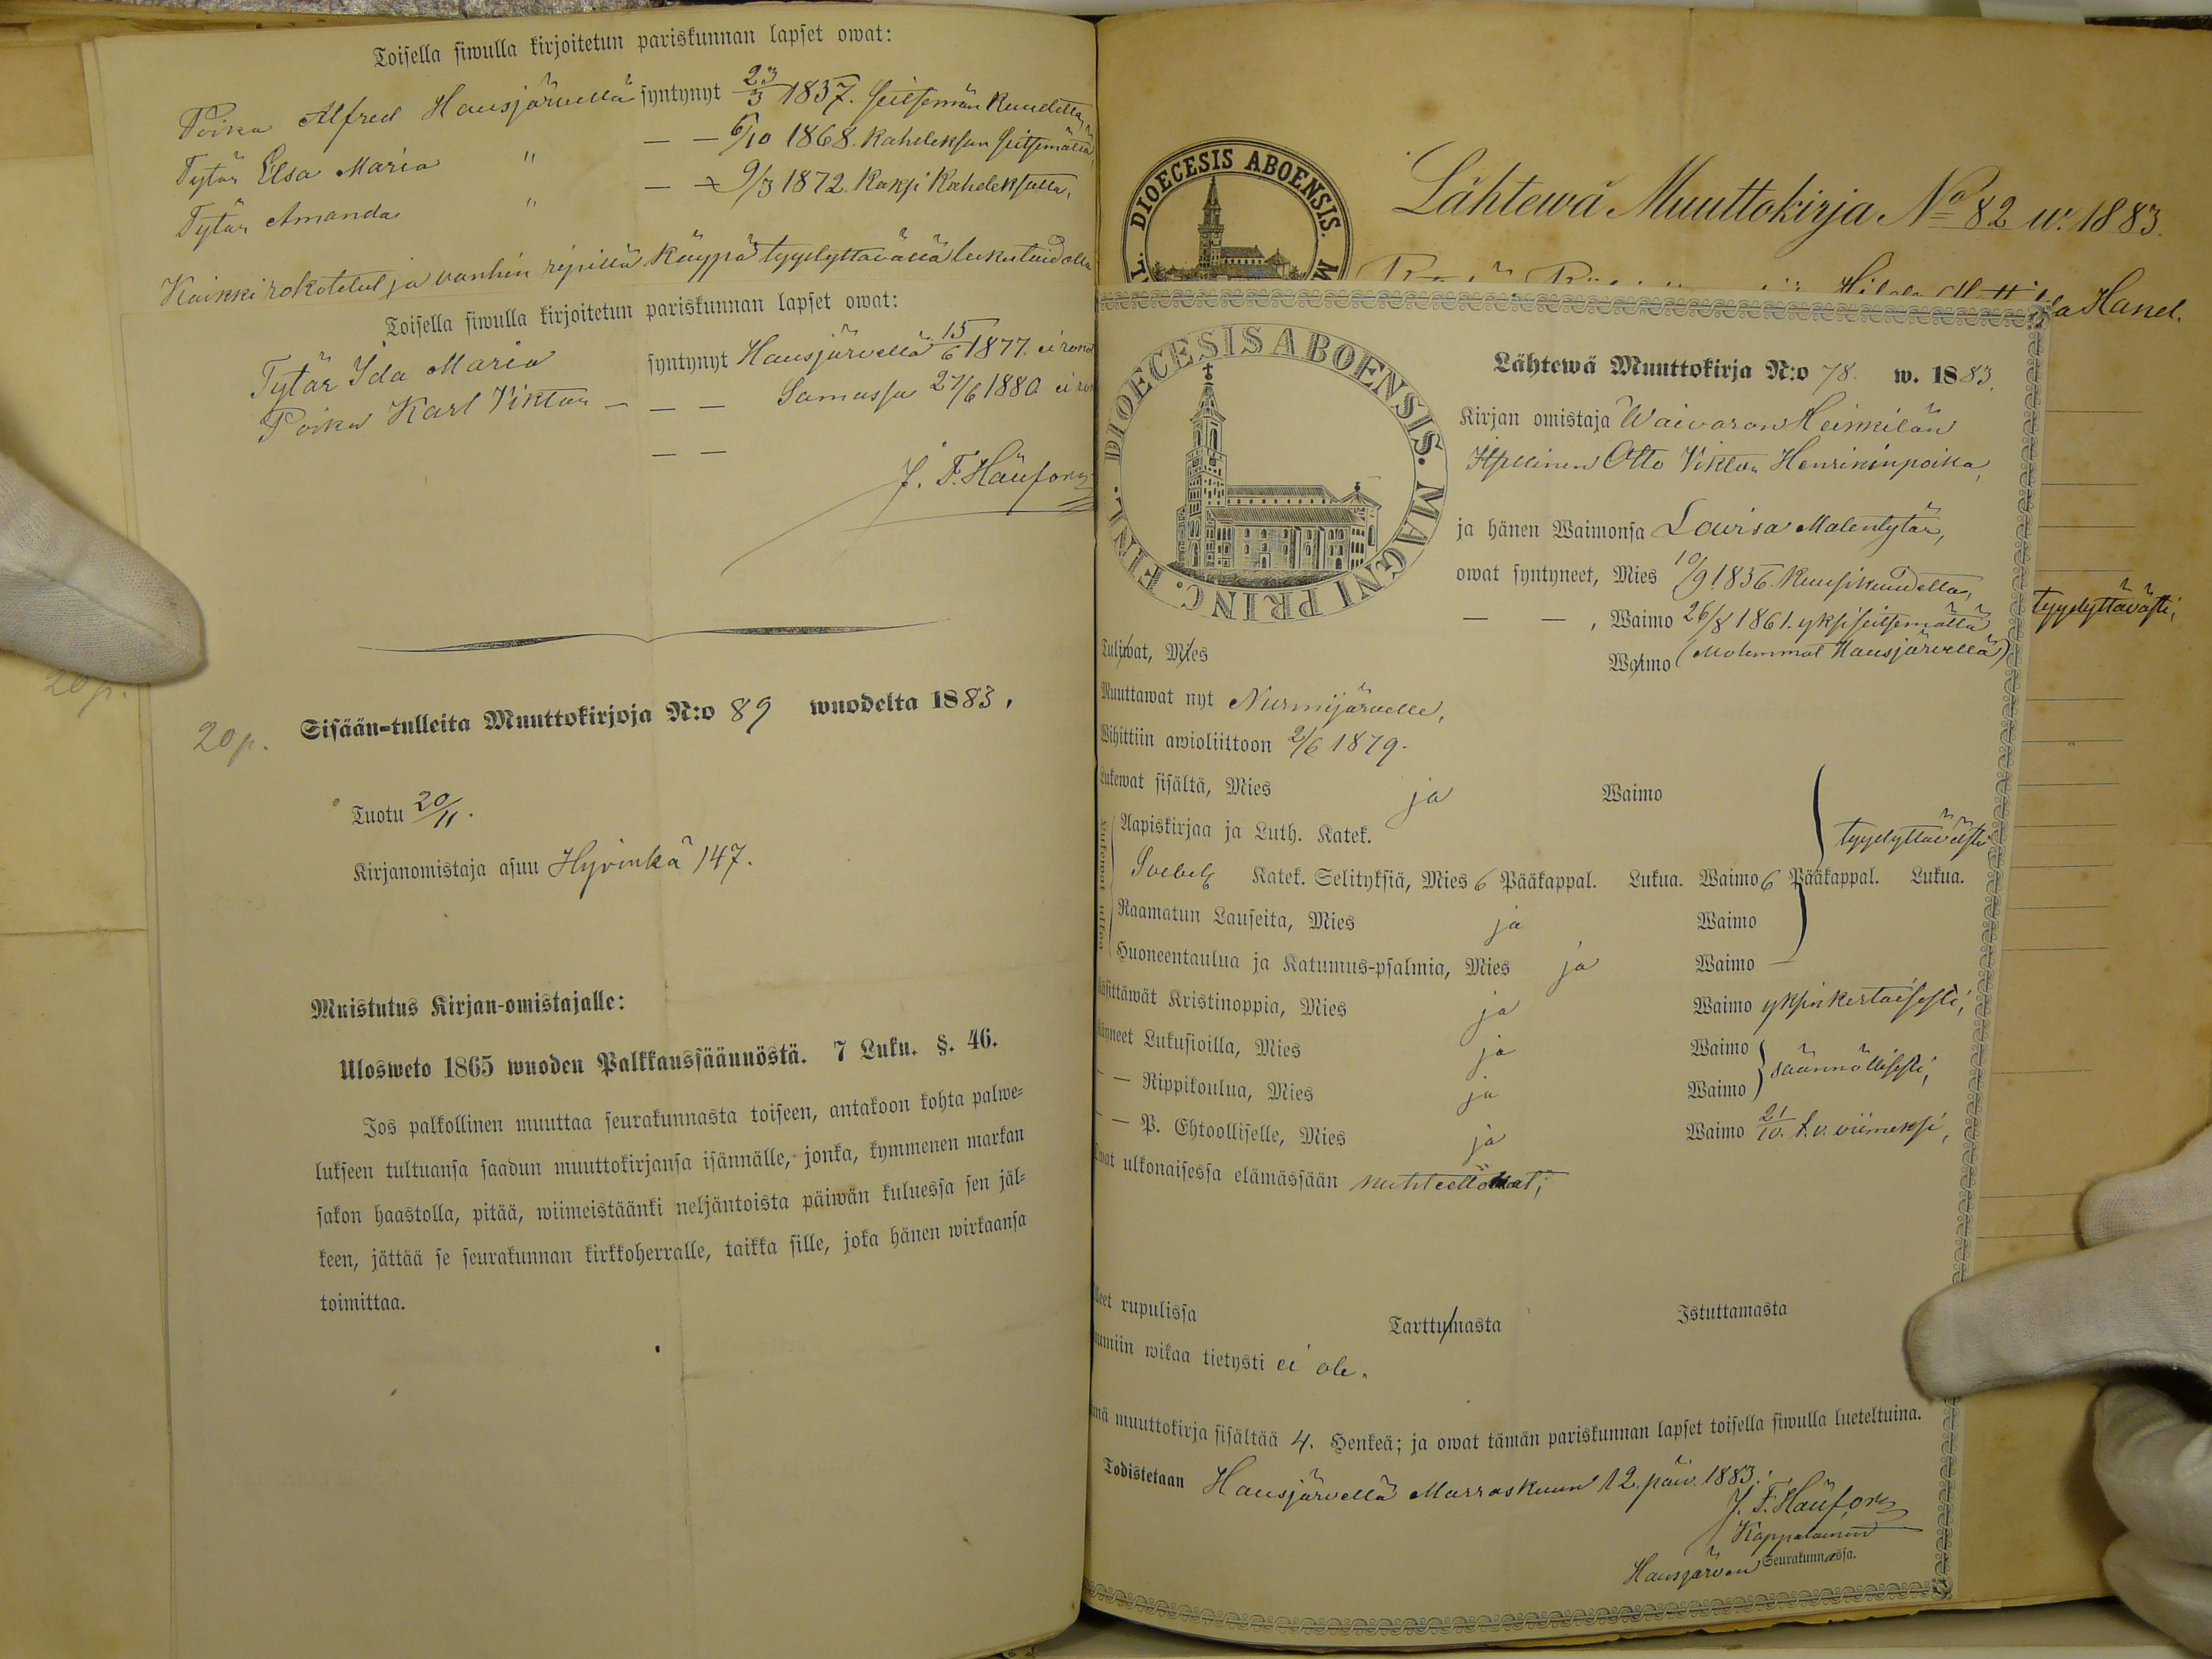 Toisella siwulla kirjoitetun pariskunnan lapset owat:
Poika Alfred Hausjärvellä syntynyt 23/3 1837. seitsemän kuudetta,
Tytär Elsa Maria " — — 6/10 1868. kahdeksan seitsemättä,
Tytär Amanda " — — 9/3 1872. kaksi kahdeksatta,
Kaikki rokotetut ja vanhin ripillä käypä tyydyttävällä lukutaidolla
Toisella siwulla kirjoitetun pariskunnan lapset owat:
Tytär Ida Maria syntynyt Hausjärvellä 15/6 1877. ei
Poika Karl Viktor — — — Samassa 27/6 1880 ei
— —
J. F. Häufors
20 p.
20 p.
Sisään-tulleita Muuttokirjoja N:o 89 wuodelta 1883,
Tuotu 20/11.
Kirjanomistaja asuu Hyvinkä 147.
Muistutus Kirjan-omistajalle:
Ulosweto 1865 wuoden Palkkaussäännöstä. 7 Luku. §. 46.
Jos palkollinen muuttaa seurakunnasta toiseen, antakoon kohta palwe-
lukseen tultuansa saadun muuttokirjansa isännälle, jonka, kymmenen markan
sakon haastolla, pitää, wiimeistäänki neljäntoista päiwän kuluessa sen jäl-
keen, jättää se seurakunnan kirkkoherralle, taikka sille, joka hänen wirkaansa
toimittaa.
DIOECESIS ABOENSIS. M
Lähtewä Muuttokirja No 82 w. 1883.
Hanel.
DIOECESIS ABOENSIS. MAGNI PRINC. FINL.
Lähtewä Muuttokirja N:o 78. w. 1883.
Kirjan omistaja Waivaron Heinkilän
Itsellinen Otto Viktor Henrikinpoika,
ja hänen Waimonsa Lowisa Matentytär,
owat syntyneet, Mies 10/9 1836. kuusikuudetta,
— — , Waimo 26/8 1861. yksiseitsemättä
tyydyttävästi;
Tuliwat, Mies Waimo (Molemmat Hausjärvellä)
Muuttawat nyt Nurmijärvelle,
Wihittiin awioliittoon 2/6 1879.
Lukewat sisältä, Mies ja Waimo
Aapiskirjaa ja Luth. Katek. tyydyttävästi
Svebel: Katek. Selityksiä, Mies 6 Pääkappal. Lukua. Waimo 6 Pääkappal. Lukua.
Raamatun Lauseita, Mies ja Waimo
Huoneentaulua ja Katumus-psalmia, Mies ja Waimo —
Käsittäwät Kristinoppia, Mies ja Waimo yksinkertaisesti;
Käyneet Lukusioilla, Mies ja Waimo
säännöllisesti;
— — Rippikoulua, Mies ja Waimo
— — P. Ehtoolliselle, Mies ja Waimo 21/10. t.v. viimeksi,
Owat ulkonaisessa elämässään nuhteettomat;
rupulissa Tarttumasta Istuttamasta
wikaa tietysti ei ole.
muuttokirja sisältää 4. Henkeä; ja owat tämän pariskunnan lapset toisella siwulla lueteltuina.
Todistetaan Hausjärvellä Marraskuun 12. päiv. 1883.
J. F. Häufors
Kappalainen
Hausjärven Seurakunnassa.